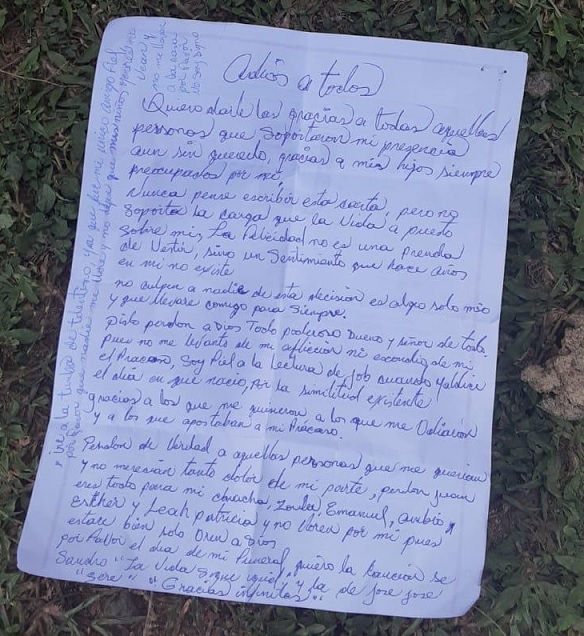 Adiós a todos
(Quiero darle las gracias a todas aquellas
personas que soportaron mi presencia
aun sin quererlo, gracias a mis hijos siempre
preocupados por mi,
Nunca pense escribir esta carta, pero no
soporta la carga que la vida a puesto
sobre mi, La felicidad no es una prenda
de vestir, sino un sentimiento que hace años
en mi no existe
no culpen a nadie de esta decisión es algo solo mio
y que llevare conmigo para siempre.
pido perdon a Dios Todo poderoso Dueño y señor de todo
pues no me levante de mi aflicción ni escondio de mi
el fracaso, soy fiel a la lectura de job cuando maldice
el dia en que nacio, por la similitud existente
gracias a los que me quisieron a los que me odiaron
y a los que apostaban a mi fracaso.
Perdon de verdad a aquellas personas que me querian
y no merecian tanto dolor de mi parte, perdon juan
eres todo para mi Emanuel,
Esther y Leah patricia y no lloren por mi pues
estare bien solo Oren a Dios
por favor el dia de mi funeral quiero la canción se
Sandro "La Vida sigue igual" y la de jose jose
"Sere" "Gracias infinitas"
ire a la tumba de ya que fue mi unico amigo fiel
por favor que nadie me llore y no dejen que mis niños pequeños me
vean y
no me lleven
a la casa
por favor